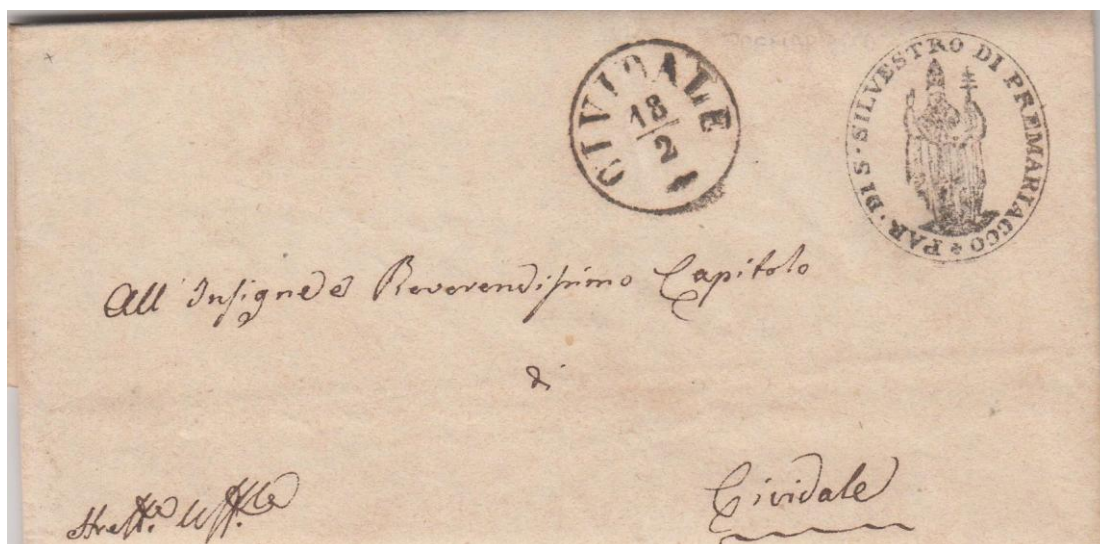 CIVIDALE
18/2
PAR · DI S · SILVESTRO DI PREMARIACCO
All' Insigne e Reverendissimo Capitolo
di
Cividale